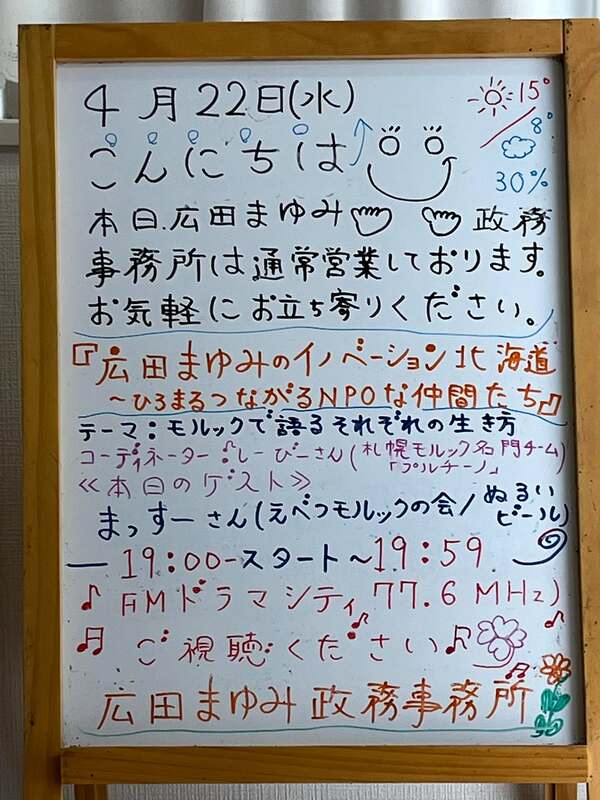 4月22日(水)
15°
8°
30%
こんにちは
本日、広田まゆみ 政務
事務所は通常営業しております。
お気軽にお立ち寄りください。
『広田まゆみのイノベーション北海道
～ひろまるつながるNPOな仲間たち』
テーマ:モルックで語るそれぞれの生き方
コーディネーター:しーびーさん(札幌モルック名門チーム
「プルチーノ」)
≪本日のゲスト≫
まっすーさん(えべつモルックの会/ぬるい
ビール)
19:00-スタート～19:59
FMドラマシティ 77.6MHz)
ご視聴ください
広田まゆみ政務事務所